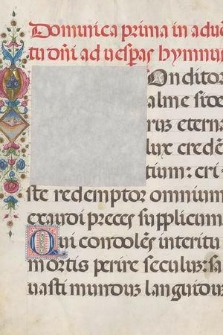 Dominica prima in adue
tu dñi ad uesp̃as hymnus
onditor
alme side
rum eterna
lux credẽ
tium: cri-
ste redemptor omnium
exaudi preces supplicum
Qui condolẽs interitu
mortis perire seculum: sa
uasti mundum languidu